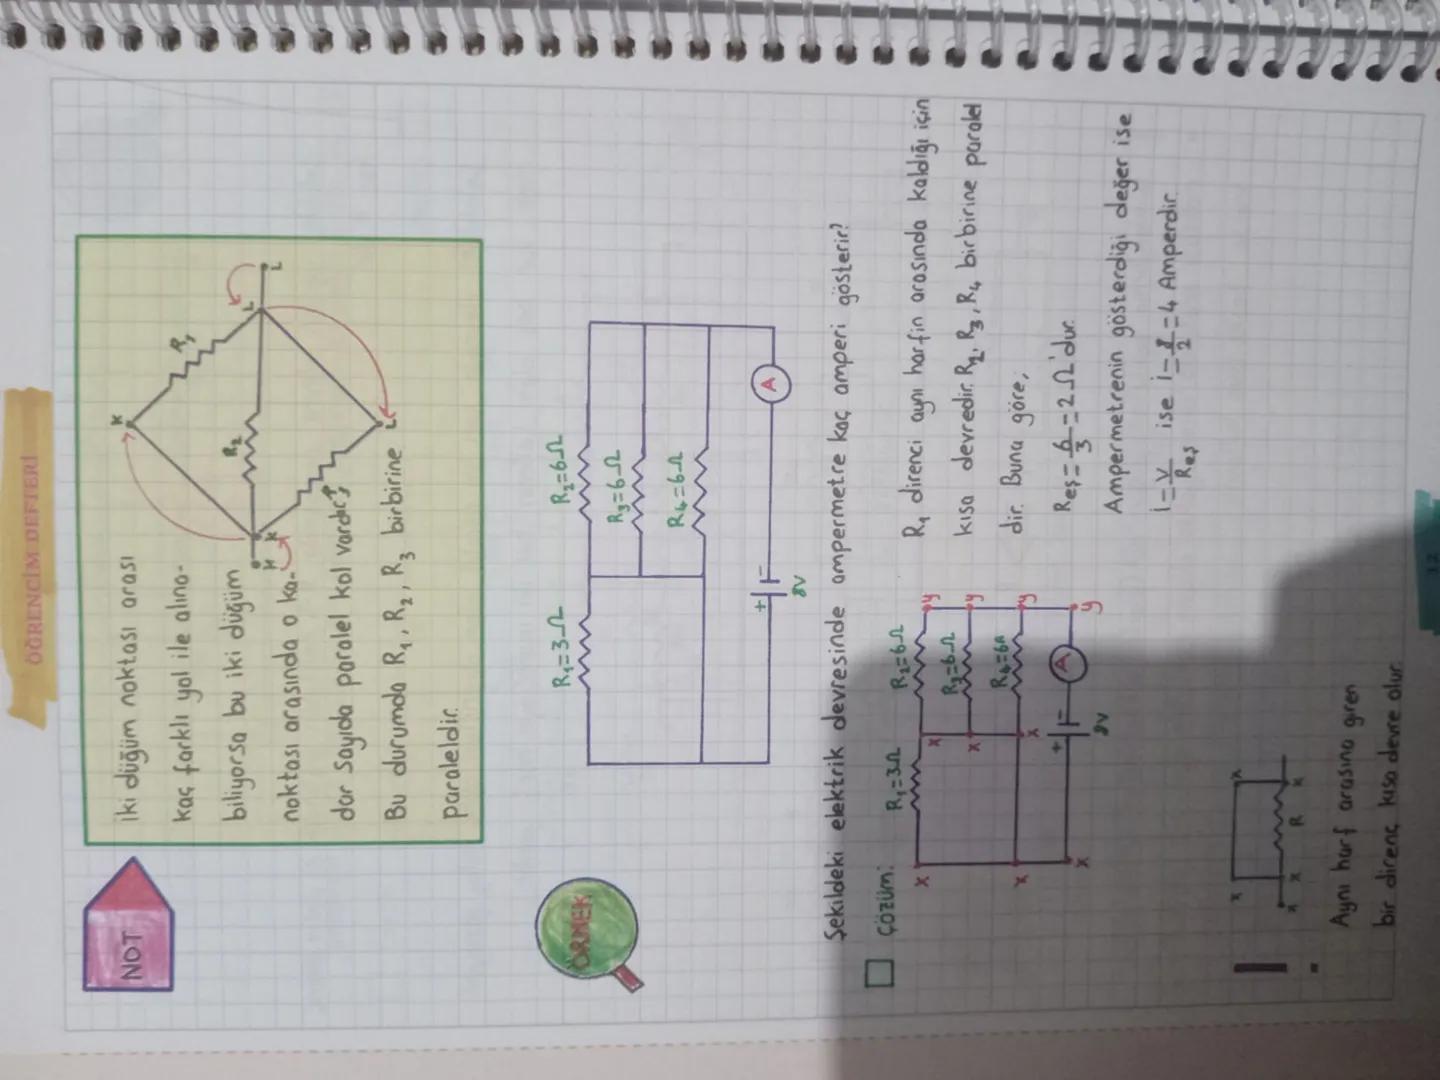 ÖĞRENCİM DEFTERİ
NOT
İki düğüm noktası arası
kaç farklı yol ile alına-
biliyorsa bu iki düğüm
noktası arasında o ka-
dar sayıda paralel kol vardır.
Bu durumda R₁, R₂, R₃ birbirine
paraleldir.
K
R₁
R₂
L
L
K
K
R₃
L
ÖRNEK
R₁=3Ω
R₂=6Ω
R₃=6Ω
R₄=6Ω
+
-
8V
A
Şekildeki elektrik devresinde ampermetre kaç amperi gösterir?
Çözüm:
R₁=3Ω
R₂=6Ω
R₃=6Ω
R₄=6Ω
x
x
x
x
x
x
y
y
y
y
+
-
8V
A
R₁ direnci aynı harfin arasında kaldığı için
kısa devredir. R₂, R₃, R₄ birbirine paralel
dir. Buna göre;
Reş=6/3=2Ω'dur.
Ampermetrenin gösterdiği değer ise
i=V/Reş ise i=8/2=4 Amperdir.
!
x
x
x
x
R
x
Aynı harf arasına giren
bir direnç kısa devre olur.
12